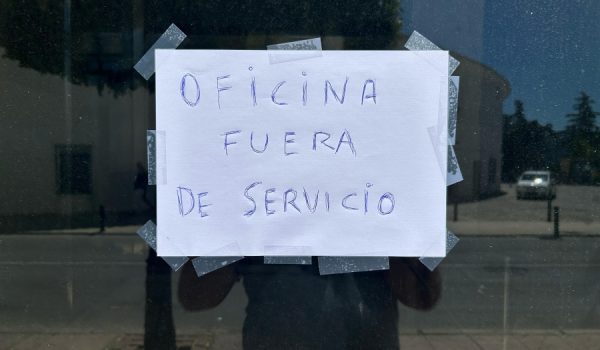 OFICINA
FUERA
DE SERVICIO